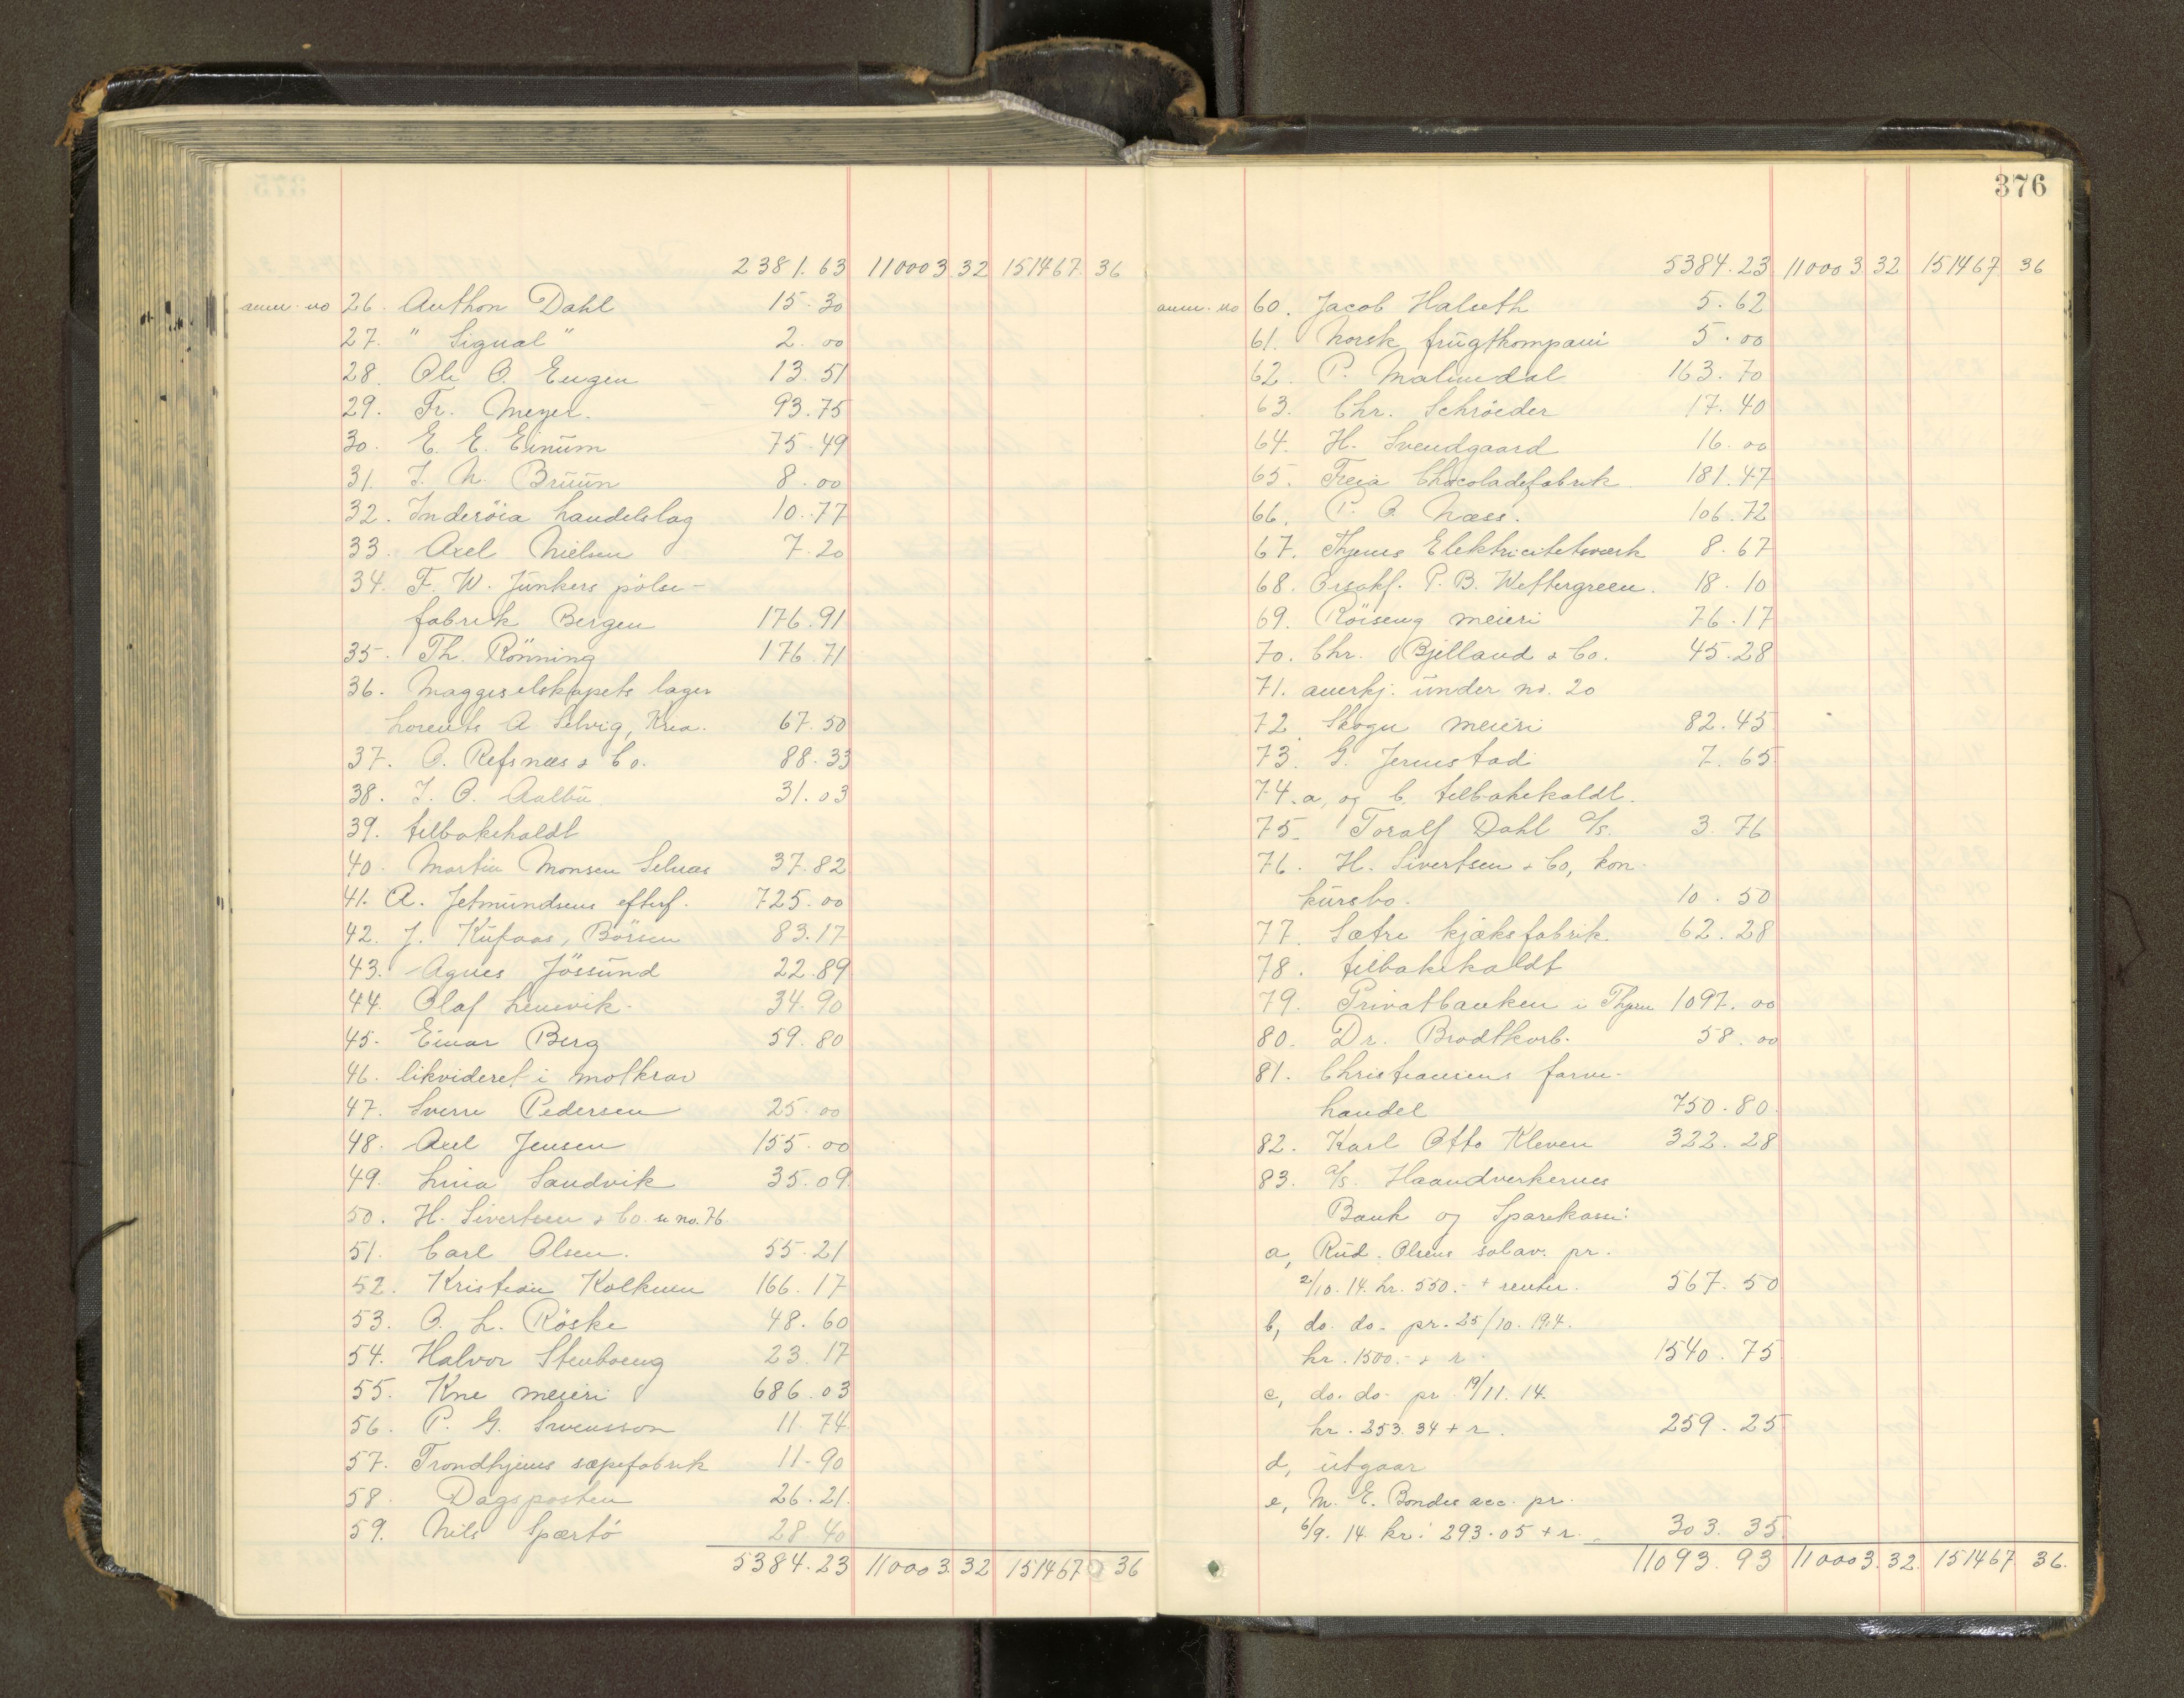 2381.63 11000 3.32 151467.36
anm. no 26. Anthon Dahl 15.30
27. "Signal" 2.00
28. Ole O. Engen 13.51
29. Fr. Meyer. 93.75
30. E. E. Einum 75.49
31. J. N. Bruun 8.00
32. Inderöia handelslag 10.77
33. Axel Nielsen 7.20
34. F. W. Junkers pölse-
fabrik Bergen 176.91
35. Th. Rönning 176.71
36. Maggiselskapets lager
Lorents A Selvig, Kria. 67.50
37. O. Refsnæs & Co. 88.33
38. J. O. Aalbu 31.03
39. tilbakekaldt
40. Martin Monsen Selnæs 37.82
41. A. Jetmundsens efterf. 725.00
42. J. Kufaas, Börsen 83.17
43. Agnes Jössund 22.89
44. Olaf Lensvik. 34.90
45. Einar Berg 59.80
46. likvideret i motkrav
47. Sverre Pedersen 25.00
48. Axel Jensen 155.00
49. Lina Sandvik 35.09
50. H. Sivertsen & Co. se no. 76.
51. Carl Olsen. 55.21
52. Kristian Kolkmen 166.17
53. O. L. Röske 48.60
54. Halvor Stenboeng 23.17
55. Kne meieri 686.03
56. P. G. Svensson 11.74
57. Trondhjems sæpefabrik 11.90
58. Dagsposten 26.21.
59. Nils Spærtö 28.40
5384.23 11000 3.32 151467 36
376
5384.23 11000 3.32 151467 36
anm. no 60. Jacob Halseth 5.62
61. Norsk frugtkompani 5.00
62. P. Malmedal 163.70
63. Chr. Schröeder 17.40
64. H. Svendgaard 16.00
65. Freia Chocoladefabrik 181.47
66. P. O. Næss. 106.72
67. Thjems Elektricitetsværk 8.67
68. Orsakf. P. B. Wettergreen. 18.10
69. Röiseng meieri 76.17
70. Chr. Bjelland & Co. 45.28
71. anerkj. under no. 20
72. Skogn meieri 82.45
73. G. Jernstad 7.65
74. a, og b. tilbakekaldt.
75. Toralf Dahl a/s. 3.76
76. H. Sivertsen & Co, kon-
kursbo. 10.50
77. Sætre kjæksfabrik. 62.28
78. tilbakekaldt
79. Privatbanken i Thjem 1097.00
80. Dr. Brodtkorb. 58.00
81. Christiansens farve-
handel 750.80.
82. Karl Otto Kleven 322.28
83. a/s. Haandverkernes
Bank og Sparekasse:
a, Rud. Olsens solav. pr.
2/10. 14. kr. 550.- + renter. 567.50
b, do. do. pr. 25/10. 1914.
kr. 1500.- + r. 1540.75
c, do. do. pr. 19/11. 14.
kr. 253.34 + r. 259.25
d, utgaar
e, M. E. Bondes acc. pr.
6/9. 14. kr: 293.05 + r. 303.35.
11093.93 11000 3.32. 151467 36.